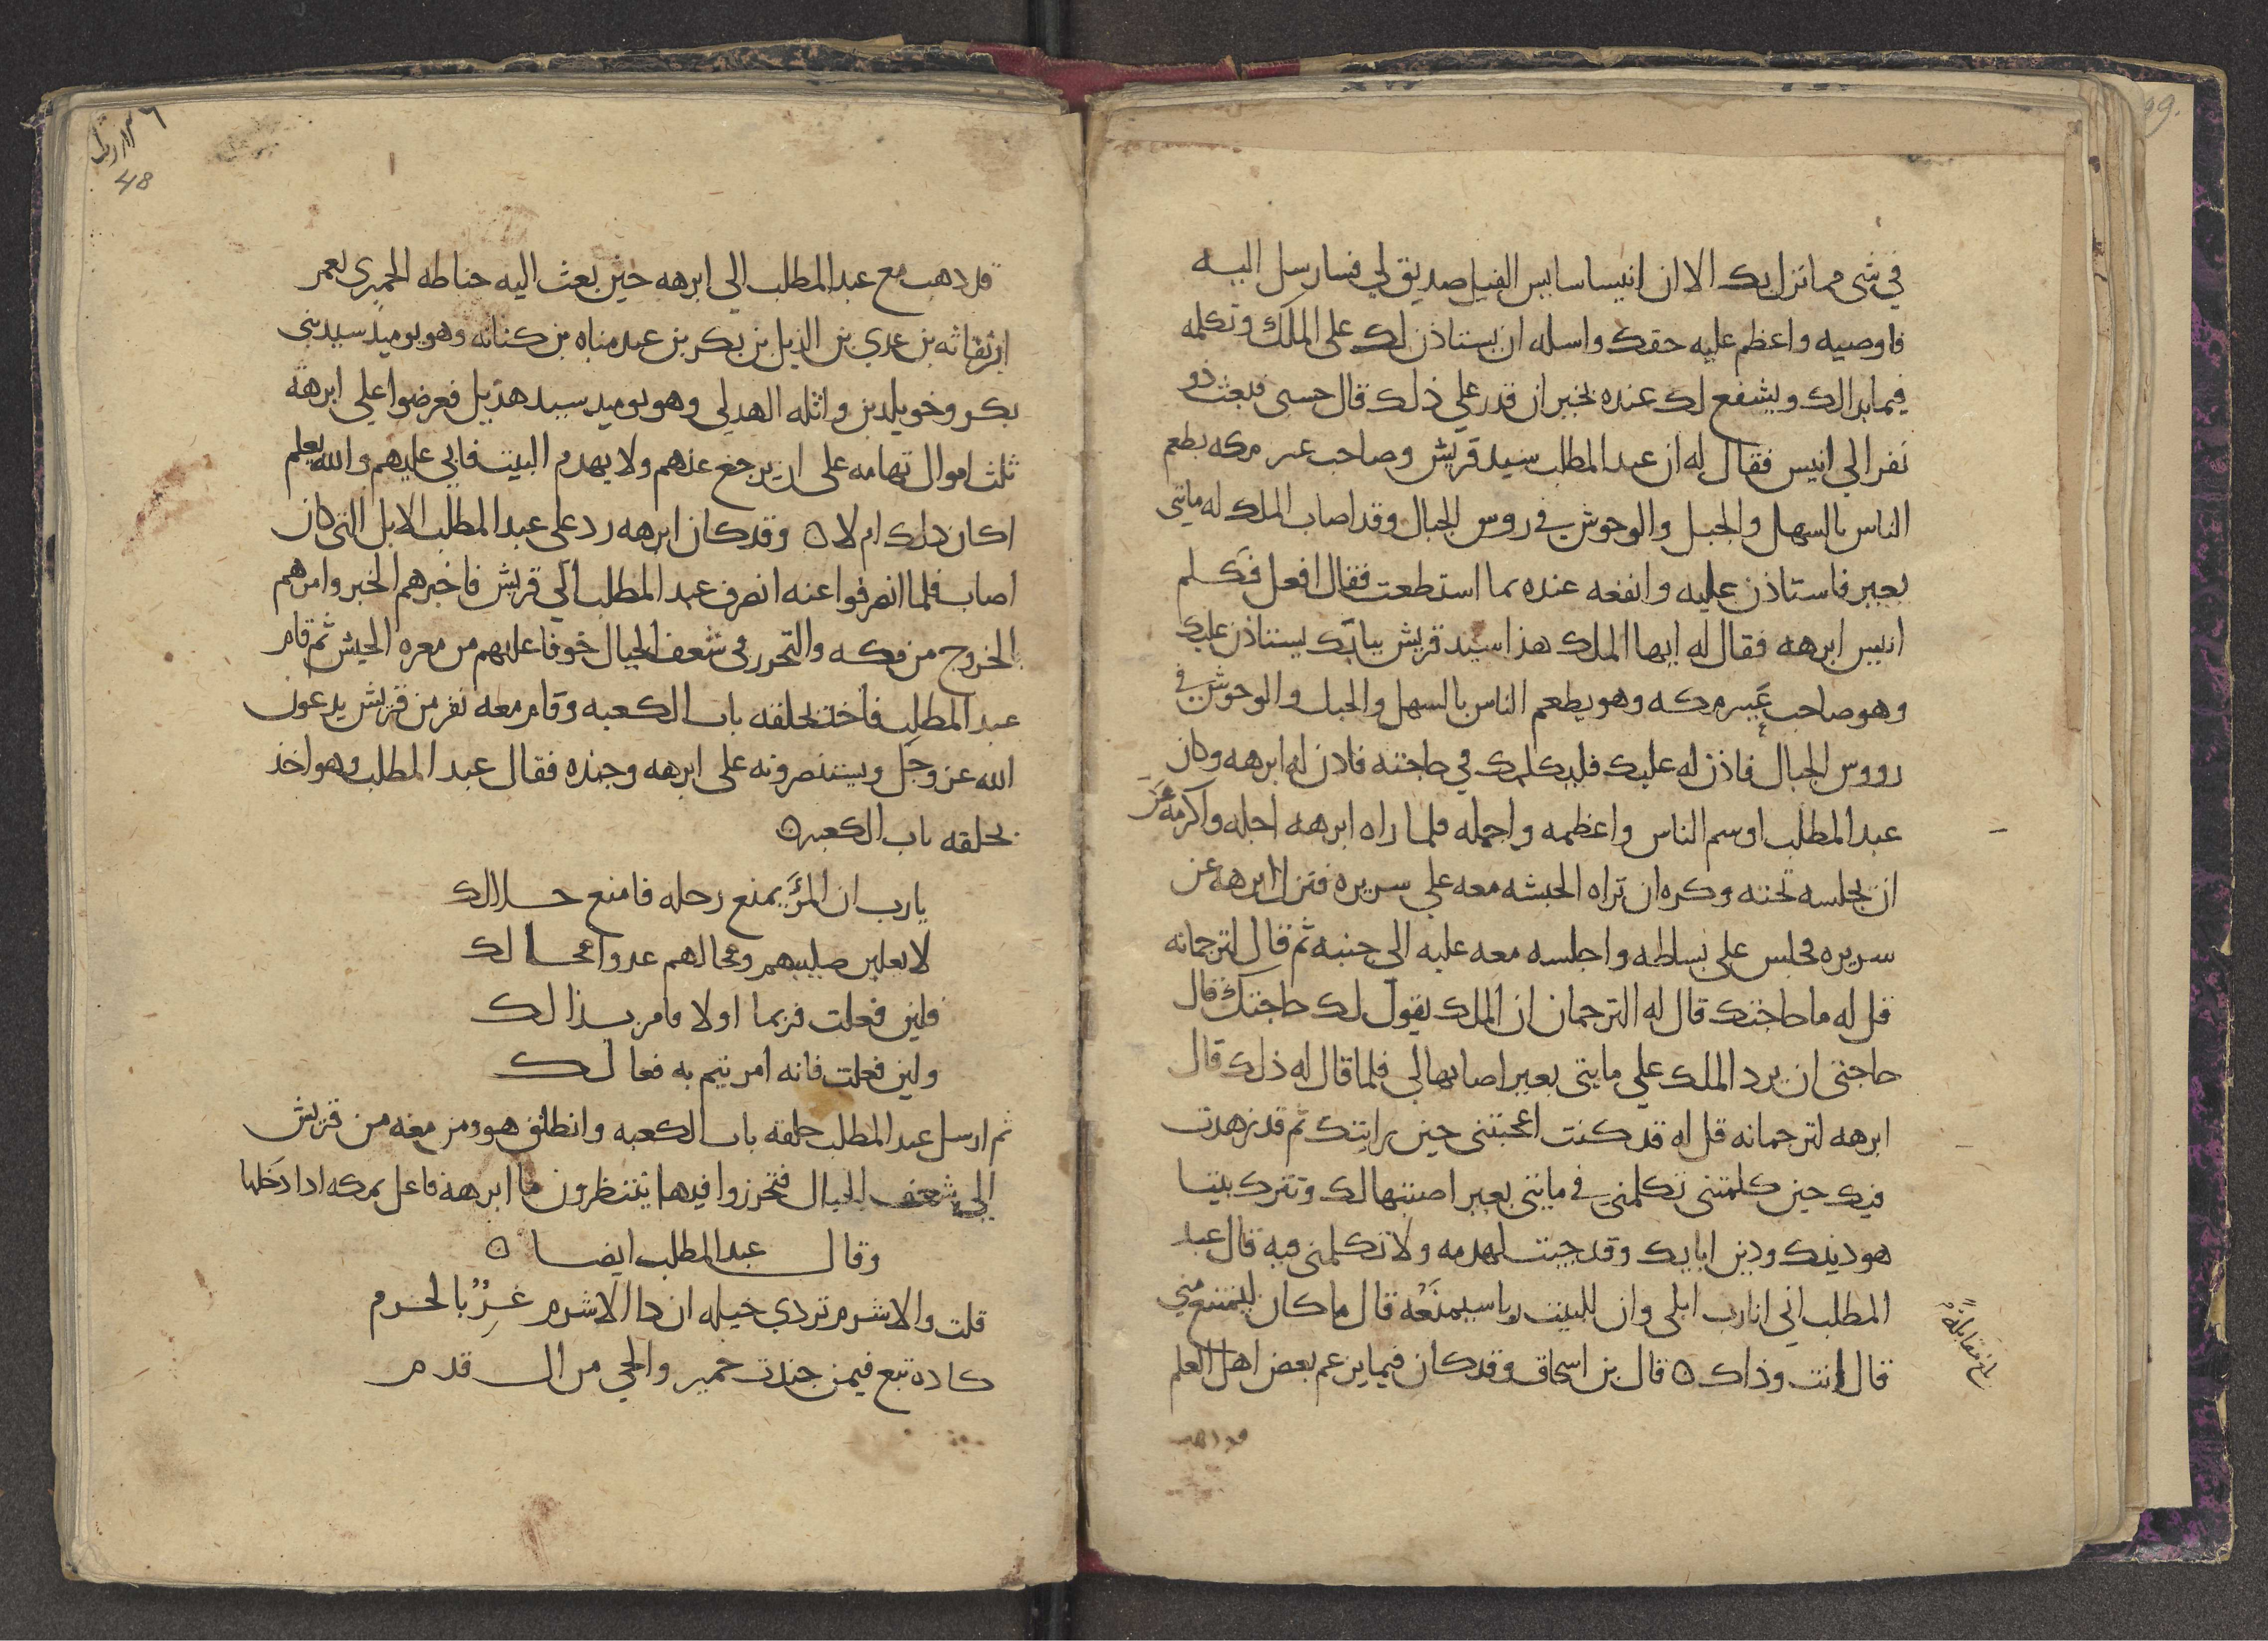 99.
في شى مما نزل بك الا ان انيسا سايس الفيل صديق لي فسارسل اليه
فاوصيه واعظم عليه حقك واسله ان يستاذن لك على الملك وتكلمه
فيما بدا لك ويشفع لك عنده بخير ان قدر علي ذلك قال حسبى فبعث ذو
نفر الي انيس فقال له ان عبد المطلب سيد قريش وصاحب عير مكه يطعم
الناس بالسهل والجبل والوحوش في روس الجبال وقد اصاب الملك له مايتى
بعير فاستاذن عليه وانفعه عنده بما استطعت فقال افعل فكلم
انيس ابرهه فقال له ايها الملك هذا سيد قريش ببابك يستاذن عليك
وهو صاحب عير مكه وهو يطعم الناس بالسهل والجبل والوحوش في
رووس الجبال فاذن له عليك فليكلمك في حاجته فاذن له ابرهه وكان
عبد المطلب اوسم الناس واعظمه واجمله فلما راه ابرهه اجله واكرمه عن
ان يجلسه تحته وكره ان تراه الحبشه معه علي سريره فنزل ابرهه عن
سريره فجلس على بساطه واجلسه معه عليه الى جنبه ثم قال لترجمانه
قل له ما حاجتك قال له الترجمان ان الملك يقول لك حاجتك قال
حاجتى ان يرد الملك علي مايتى بعير اصابها لي فلما قال له ذلك قال
ابرهه لترجمانه قل له قد كنت اعجبتنى حين رايتك ثم قد زهدت
فيك حين كلمتنى تكلمنى في مايتى بعير اصبتها لك وتترك بيتا
هو دينك ودين ابايك وقد جيت لهدمه ولا تكلمنى فيه قال عبد
المطلب اني انا رب ابلى وان للبيت ربا سيمنعه قال ما كان ليمتنع مني
قال انت وذاك ه قال بن اسحاق وقد كان فيما يزعم بعض اهل العلم
بلغ مقابلة
قد ذهب
48
قد ذهب مع عبد المطلب الي ابرهه حين بعث اليه حناطه الحميرى يعمر
ابن نفاثه بن عدي بن الديل بن بكر بن عبد مناه بن كنانه وهو يوميذ سيد بنى
بكر وخويلد بن واثله الهدلي وهو يوميد سيد هذيل فعرضوا علي ابرهة
ثلث اموال تهامه على ان يرجع عنهم ولا يهدم البيت فابي عليهم والله يعلم
اكان ذلك ام لا ه وقد كان ابرهه رد على عبد المطلب الابل التى كان
اصاب فلما انصرفوا عنه انصرف عبد المطلب الي قريش فاخبرهم الخبر وامرهم
بالخروج من مكه والتحرر فى شعف الجبال خوفا عليهم من معره الجيش ثم قام
عبد المطلب فاخذ بحلقه باب الكعبه وقام معه نفر من قريش يدعون
الله عز وجل ويستنصرونه على ابرهه وجنده فقال عبد المطلب وهو اخذ
بحلقه باب الكعبه ه
يا رب ان المرء يمنع رحله فامنع حلالك
لا يغلبن صليبهم ومحالهم عدوا محالك
فلين فعلت فربما اولا فامر بذالك
ولين فعلت فانه امر يتم به فعالك
ثم ارسل عبد المطلب حلقه باب الكعبه وانطلق هو ومن معه من قريش
الي شعف الجبال فتحرزوا فيها ينتظرون ما ابرهة فاعل بمكه اذا دخلها
وقال عبد المطلب ايضا ه
قلت والاشرم تردي خيله ان ذا الاشرم غر بالحرم
كاده تبع فيمن جندت حمير والحي من ال قدم